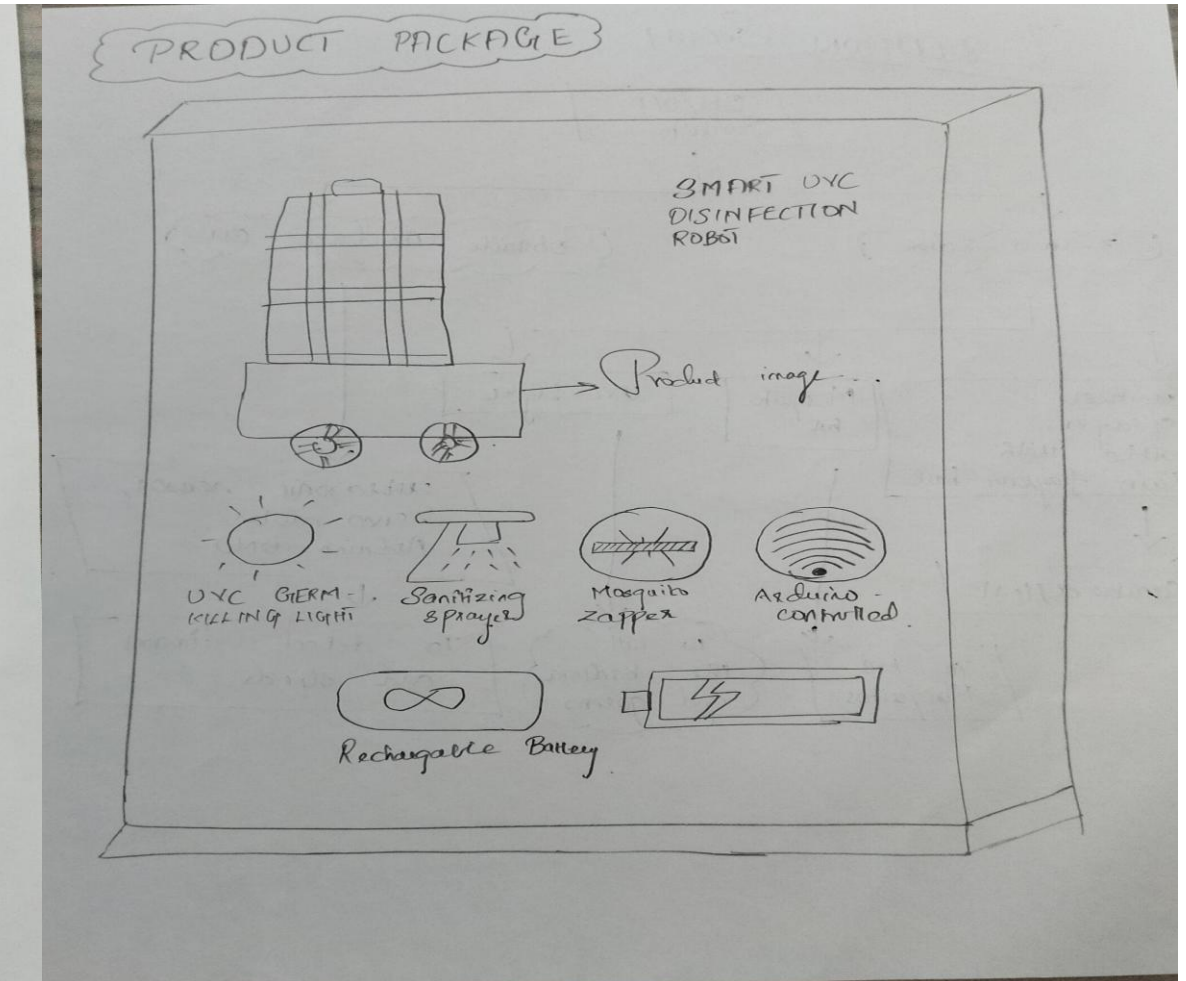 PRODUCT PACKAGE
SMART UVC
DISINFECTION
ROBOT
Product image..
UVC GERM-
KILLING LIGHT
Sanitizing
sprayer
Mosquito
zapper
Arduino-
controlled.
Rechargable Battery